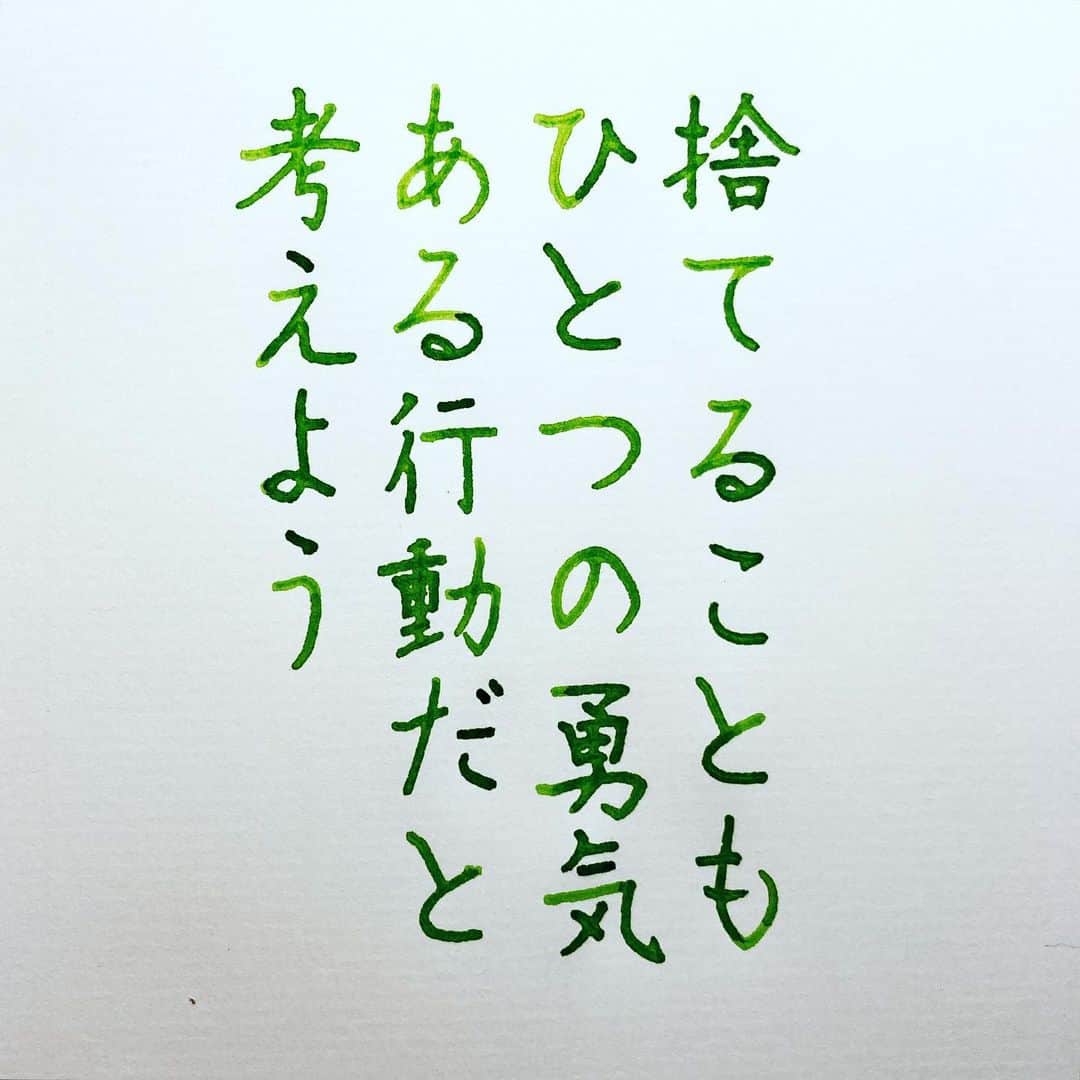 捨てることも
ひとつの勇気
ある行動だと
考えよう